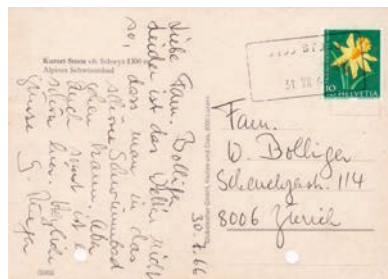 Kurort Stoos ob Schwyz 1300 m
Alpines Schwimmbad
Liebe Fam. Bolliger
leider ist das Wetter nicht
so, dass man in das
schöne Schwimmbad
gehen kann. Aber
auch sonst ist es
schön hier. Herzliche
Grüsse
30.7.66
10 HELVETIA
Fam.
W. Bolliger
8006 Zürich